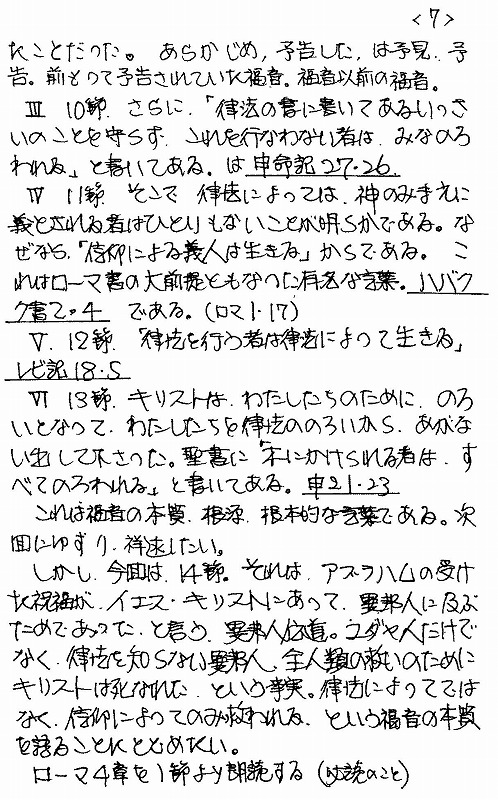 <7>
たことだった。 あらかじめ, 予告した, は予見、予
告。前もって予告されていた福音。福音以前の福音。
Ⅲ 10節、さらに、「律法の書に書いてあるいっさ
いのことを守らず、これを行なわない者は、みなのろ
われる」と書いてある。は申命記27・26
Ⅳ 11節、そこで 律法によっては、神のみまえに
義とされる者はひとりもないことが明らかである。な
ぜなら、「信仰による義人は生きる」からである。 こ
れはローマ書の大前提ともなった有名な言葉。ハバク
ク書2・4 である。(ロマ1・17)
Ⅴ、12節、「律法を行う者は律法によって生きる」
レビ記18・5
Ⅵ 13節、キリストは、わたしたちのために、のろ
いとなって、わたしたちを律法ののろいから、あがな
い出して下さった。聖書に「木にかけられる者は、す
べてのろわれる」と書いてある。申21・23
これは福音の本質、根源、根本的な言葉である。次
回にゆずり、詳述したい。
しかし、今回は、14節。それは、アブラハムの受け
た祝福が、イエス・キリストにあって、異邦人に及ぶ
ためであった、と言う、異邦人伝道。ユダヤ人だけで
なく、律法を知らない異邦人、全人類の救いのために
キリストは死なれた、という事実。律法によってでは
なく、信仰によってのみ救われる、という福音の本質
を語ることにとどめたい。
ローマ4章を1節より朗読する (は読のこと)